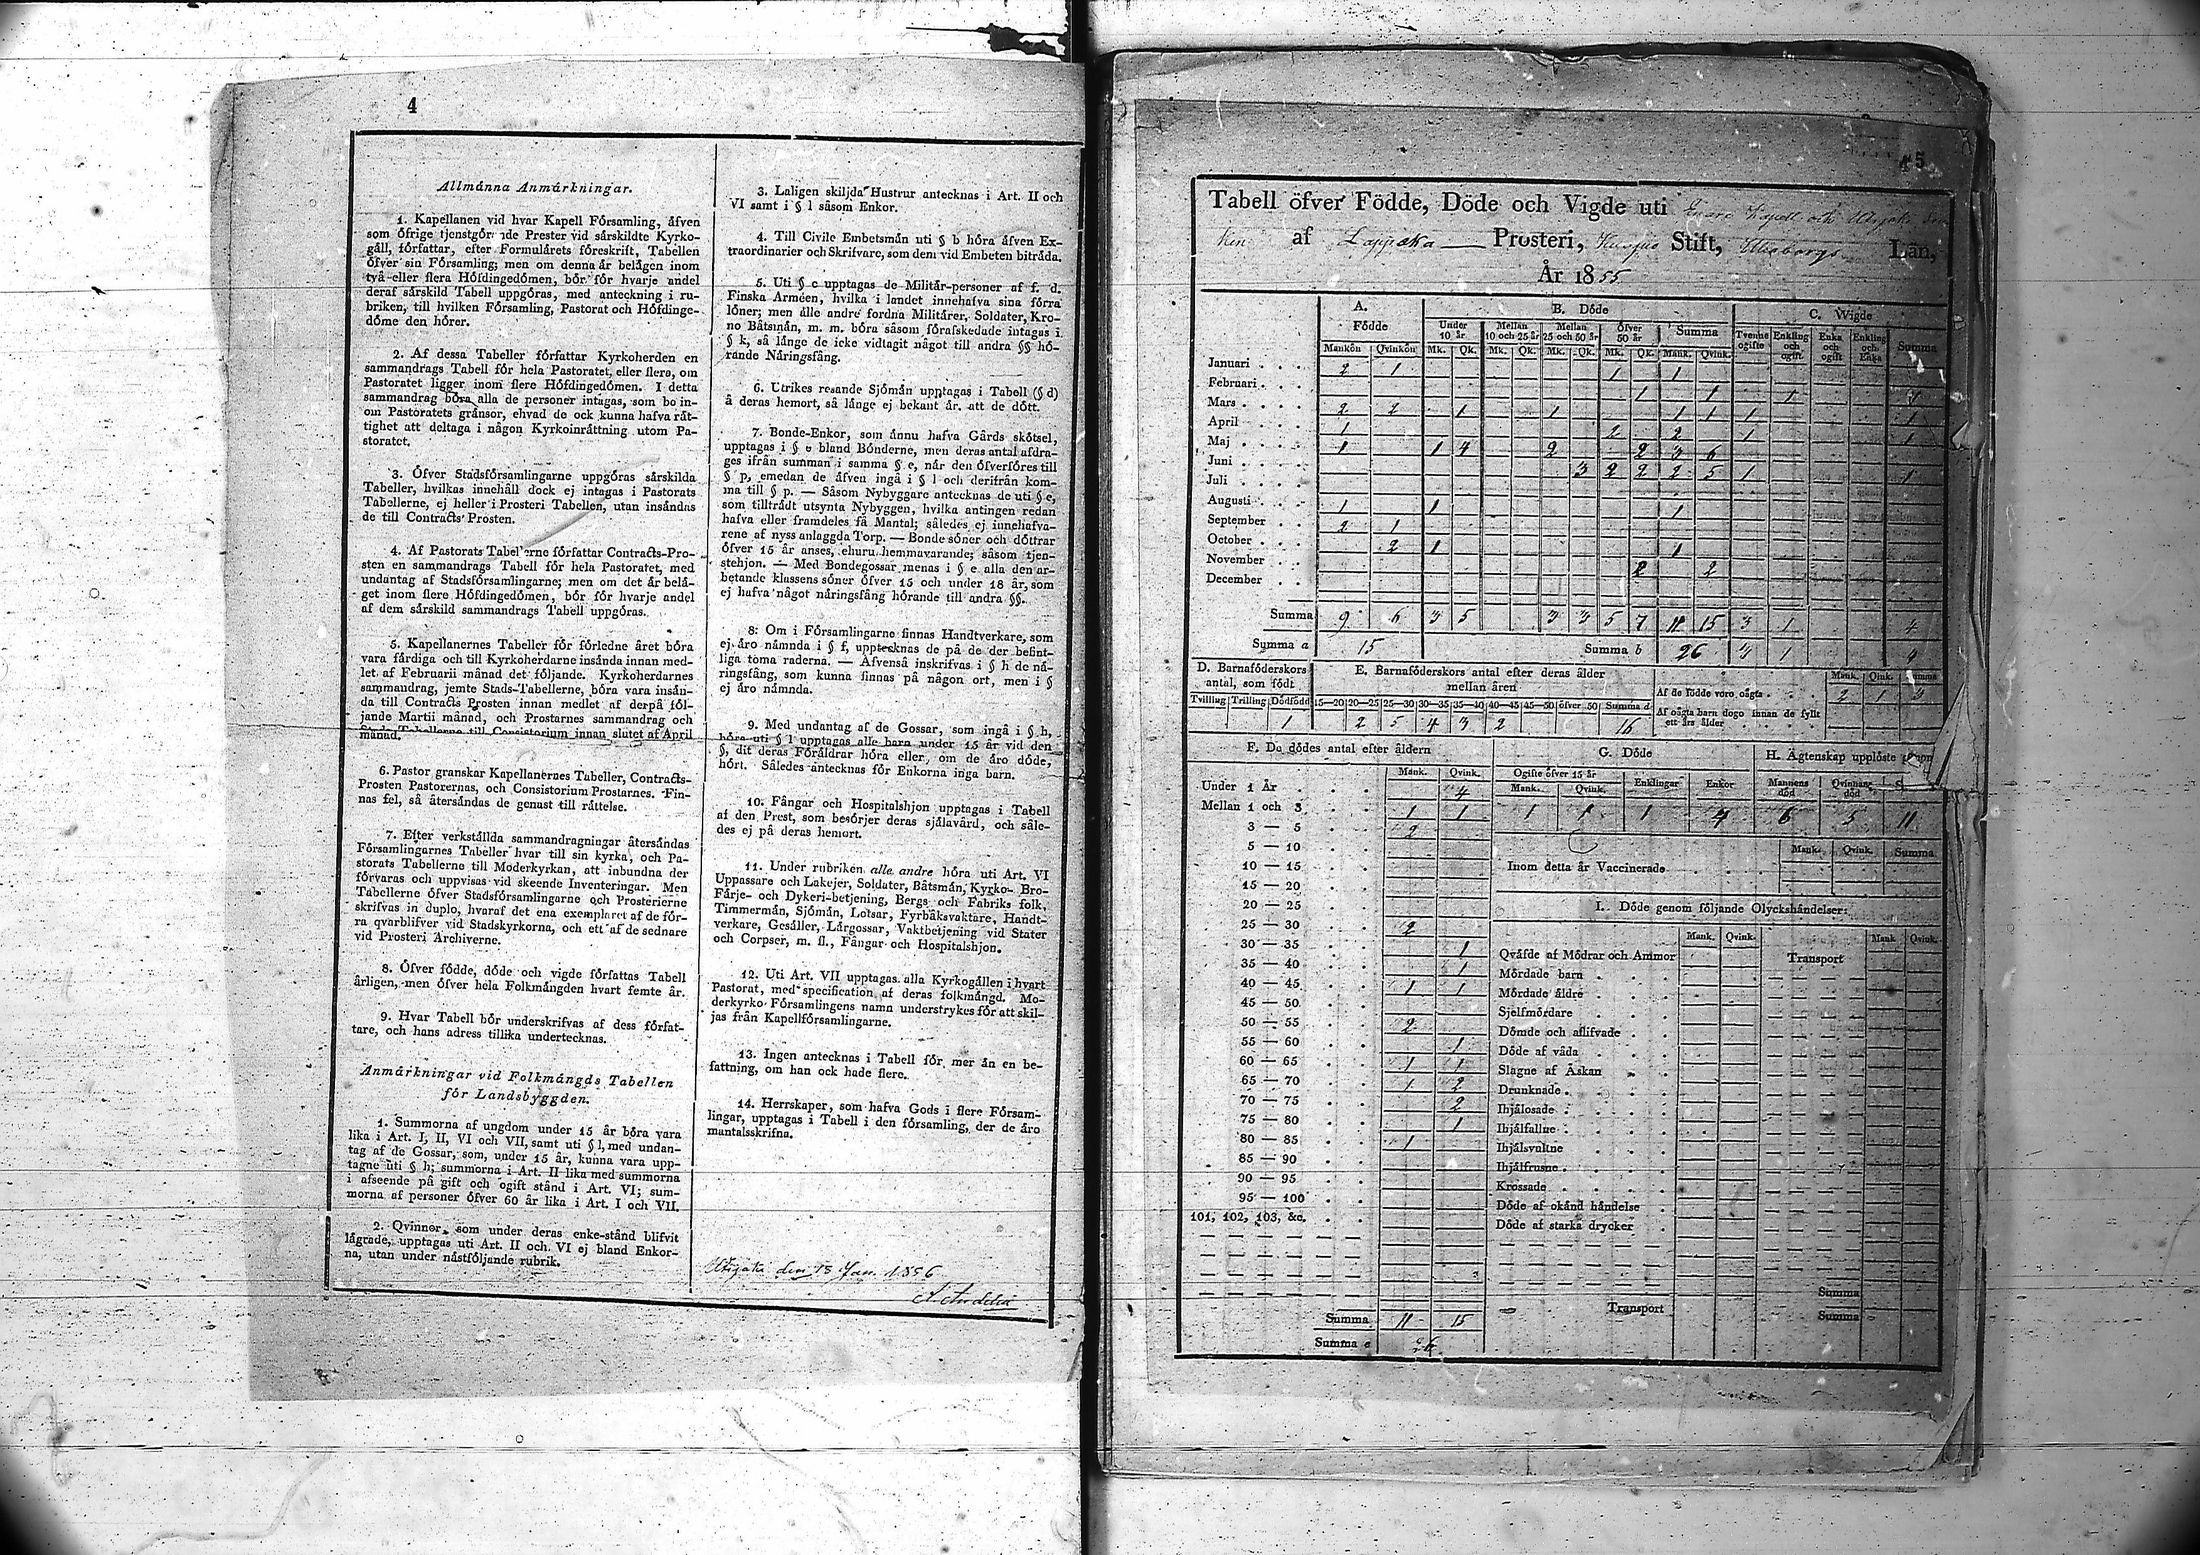 4
Allmänna Anmärkningar.
1. Kapellanen vid hvar Kapell Församling, äfven
som öfrige tjenstgörande Prester vid särskildte Kyrko-
gäll, författar, efter Formulärets föreskrift, Tabellen
öfver sin Församling; men om denna är belägen inom
två eller flera Höfdingedömen, bör för hvarje andel
deraf särskild Tabell uppgöras, med anteckning i ru-
briken, till hvilken Församling, Pastorat och Höfdinge-
döme den hörer.
2. Af dessa Tabeller författar Kyrkoherden en
sammandrags Tabell för hela Pastoratet, eller flere, om
Pastoratet ligger inom flere Höfdingedömen. I detta
sammandrag böra alla de personer intagas, som bo in-
om Pastoratets gränsor, ehvad de ock kunna hafva rät-
tighet att deltaga i någon Kyrkoinrättning utom Pa-
storatet.
3. Öfver Stadsförsamlingarne uppgöras särskilda
Tabeller, hvilkas innehåll dock ej intagas i Pastorats
Tabellerne, ej heller i Prosteri Tabellen, utan insändas
de till Contracts Prosten.
4. Af Pastorats Tabellerne författar Contracts-Pro-
sten en sammandrags Tabell för hela Pastoratet, med
undantag af Stadsförsamlingarne; men om det är belä-
get inom flere Höfdingedömen, bör för hvarje andel
af dem särskild sammandrags Tabell uppgöras.
5. Kapellanernes Tabeller för förledne året böra
vara färdiga och till Kyrkoherdarne insända innan med-
let af Februarii månad det följande. Kyrkoherdarnes
sammandrag, jemte Stads-Tabellerne, böra vara insän-
da till Contracts Prosten innan medlet af derpå föl-
jande Martii månad, och Prostarnes sammandrag och
Stads Tabellerne till Consistorium innan slutet af April
månad.
6. Pastor granskar Kapellanernes Tabeller, Contracts-
Prosten Pastorernas, och Consistorium Prostarnes. Fin-
nas fel, så återsändas de genast till rättelse.
7. Efter verkställda sammandragningar återsändas
Församlingarnes Tabeller hvar till sin kyrka, och Pa-
storats Tabellerne till Moderkyrkan, att inbundna der
förvaras och uppvisas vid skeende Inventeringar. Men
Tabellerne öfver Stadsförsamlingarne och Prosterierne
skrifvas in duplo, hvaraf det ena exemplaret af de för-
ra qvarblifver vid Stadskyrkorna, och ett af de sednare
vid Prosteri Archiverne.
8. Öfver födde, döde och vigde författas Tabell
årligen, men öfver hela Folkmängden hvart femte år.
9. Hvar Tabell bör underskrifvas af dess förfat-
tare, och hans adress tillika undertecknas.
Anmärkningar vid Folkmängds Tabellen
för Landsbyggden.
1. Summorna af ungdom under 15 år böra vara
lika i Art. I, II, VI och VII, samt uti § l, med undan-
tag af de Gossar, som, under 15 år, kunna vara upp-
tagne uti § h; summorna i Art. II lika med summorna
i afseende på gift och ogift stånd i Art. VI; sum-
morna af personer öfver 60 år lika i Art. I och VII.
2. Qvinnor, som under deras enke-stånd blifvit
lägrade, upptagas uti Art. II och VI ej bland Enkor-
na, utan under nästföljande rubrik.
3. Laligen skiljda Hustrur antecknas i Art. II och
VI samt i § l såsom Enkor.
4. Till Civile Embetsmän uti § b höra äfven Ex-
traordinarier och Skrifvare, som dem vid Embeten biträda.
5. Uti § c upptagas de Militär-personer af f. d.
Finska Arméen, hvilka i landet innehafva sina förra
löner; men alle andre fordna Militärer, Soldater, Kro-
no Båtsmän, m. m. böra såsom förafskedade intagas i
§ k, så länge de icke vidtagit något till andra §§ hö-
rande Näringsfång.
6. Utrikes resande Sjömän upptagas i Tabell (§ d)
å deras hemort, så länge ej bekant är, att de dött.
7. Bonde-Enkor, som ännu hafva Gårds skötsel,
upptagas i § e bland Bönderne, men deras antal afdra-
ges ifrån summan i samma § e, när den öfverföres till
§ p, emedan de äfven ingå i § l och derifrån kom-
ma till § p. — Såsom Nybyggare antecknas de uti § e,
som tillträdt utsynta Nybyggen, hvilka antingen redan
hafva eller framdeles få Mantal; således ej innehafva-
rene af nyss anlaggda Torp. — Bonde söner och döttrar
öfver 15 år anses, ehuru hemmavarande, såsom tjen-
stehjon. — Med Bondegossar menas i § e alla den ar-
betande klassens söner öfver 15 och under 18 år, som
ej hafva något näringsfång hörande till andra §§.
8: Om i Församlingarne finnas Handtverkare, som
ej äro nämnda i § f, upptecknas de på de der befint-
liga toma raderna. — Äfvenså inskrifvas i § h de nä-
ringsfång, som kunna finnas på någon ort, men i §
ej äro nämnda.
9. Med undantag af de Gossar, som ingå i § h,
böra uti § l upptagas alle barn under 15 år vid den
§, dit deras Föräldrar höra eller, om de äro döde,
hört. Således antecknas för Enkorna inga barn.
10. Fångar och Hospitalshjon upptagas i Tabell
af den Prest, som besörjer deras själavård, och såle-
des ej på deras hemort.
11. Under rubriken alle andre höra uti Art. VI
Uppassare och Lakejer, Soldater, Båtsmän, Kyrko- Bro-
Färje- och Dykeri-betjening, Bergs och Fabriks folk,
Timmermän, Sjömän, Lotsar, Fyrbåksvaktare, Handt-
verkare, Gesäller, Lärgossar, Vaktbetjening vid Stater
och Corpser, m. fl., Fångar och Hospitalshjon.
12. Uti Art. VII upptagas alla Kyrkogällen i hvart
Pastorat, med specification af deras folkmängd. Mo-
derkyrko Församlingens namn understrykes för att skil-
jas från Kapellförsamlingarne.
13. Ingen antecknas i Tabell för mer än en be-
fattning, om han ock hade flere.
14. Herrskaper, som hafva Gods i flere Försam-
lingar, upptagas i Tabell i den församling, der de äro
mantalsskrifna.
den 13 Jan. 1856
5
Tabell öfver Födde, Döde och Vigde uti Enare Kapell och Utsjoki
af Lappska Prosteri, Kuopio Stift, Uleåborgs Län,
År 1855
A. Födde B. Döde C. Wigde
Under 10 år Mellan 10 och 25 år Mellan 25 och 50 år Öfver 50 år Summa Tvenne ogifte Enkling och ogift Enka och ogift Enkling och Enka Summa
Mankön Qvinkön Mk. Qk. Mk. Qk. Mk. Qk. Mk. Qk. Mank. Qvink.
Januari 2 1 1 1
Februari 1 1 1 1
Mars 2 2 1 1 1 1 1 1
April 1 2 2 1 1
Maj 1 1 4 2 2 3 6
Juni 3 2 2 2 5 1 1
Juli
Augusti 1 1 1
September 2 1
October 2 1 1
November 2 2
December
Summa 9 6 3 5 3 3 5 7 11 15 3 1 4
Summa a 15 Summa b 26 3 1 4
D. Barnaföderskors antal, som födt
Tvilling Trilling Dödfödd
1
E. Barnaföderskors antal efter deras ålder mellan åren
15—20 20—25 25—30 30—35 35—40 40—45 45—50 öfver 50 Summa d
2 5 4 3 2 16
Mank. Qink. Summa
Af de födde voro oägta 2 1 3
Af oägta barn dogo innan de fyllt
ett års ålder
F. De dödes antal efter åldern
Mank. Qvink.
Under 1 År 4
Mellan 1 och 3 1 1
3 — 5 2
5 — 10
10 — 15
15 — 20
20 — 25
25 — 30 2
30 — 35 1
35 — 40 1
40 — 45 1 1
45 — 50
50 — 55 2
55 — 60 1
60 — 65 1 1
65 — 70 1 2
70 — 75 2
75 — 80 1
80 — 85 1
85 — 90
90 — 95
95 — 100
101, 102, 103, &c.
Summa 11 15
Summa e 26
G. Döde
Ogifte öfver 15 år Enklingar Enkor
Mank. Qvink.
1 1 1 4
H. Ägtenskap upplöste genom
Mannens död Qvinnans död
6 5 11
Mank. Qvink. Summa
Inom detta år Vaccinerade
I. Döde genom följande Olyckshändelser:
Mank. Qvink. Mank Qvink.
Qväfde af Mödrar och Ammor Transport
Mördade barn
Mördade äldre
Sjelfmördare
Dömde och aflifvade
Döde af våda
Slagne af Åskan
Drunknade
Ihjälosade
Ihjälfallne
Ihjälsvultne
Ihjälfrusne
Krossade
Döde af okänd händelse
Döde af starka drycker
Summa
Transport Summa